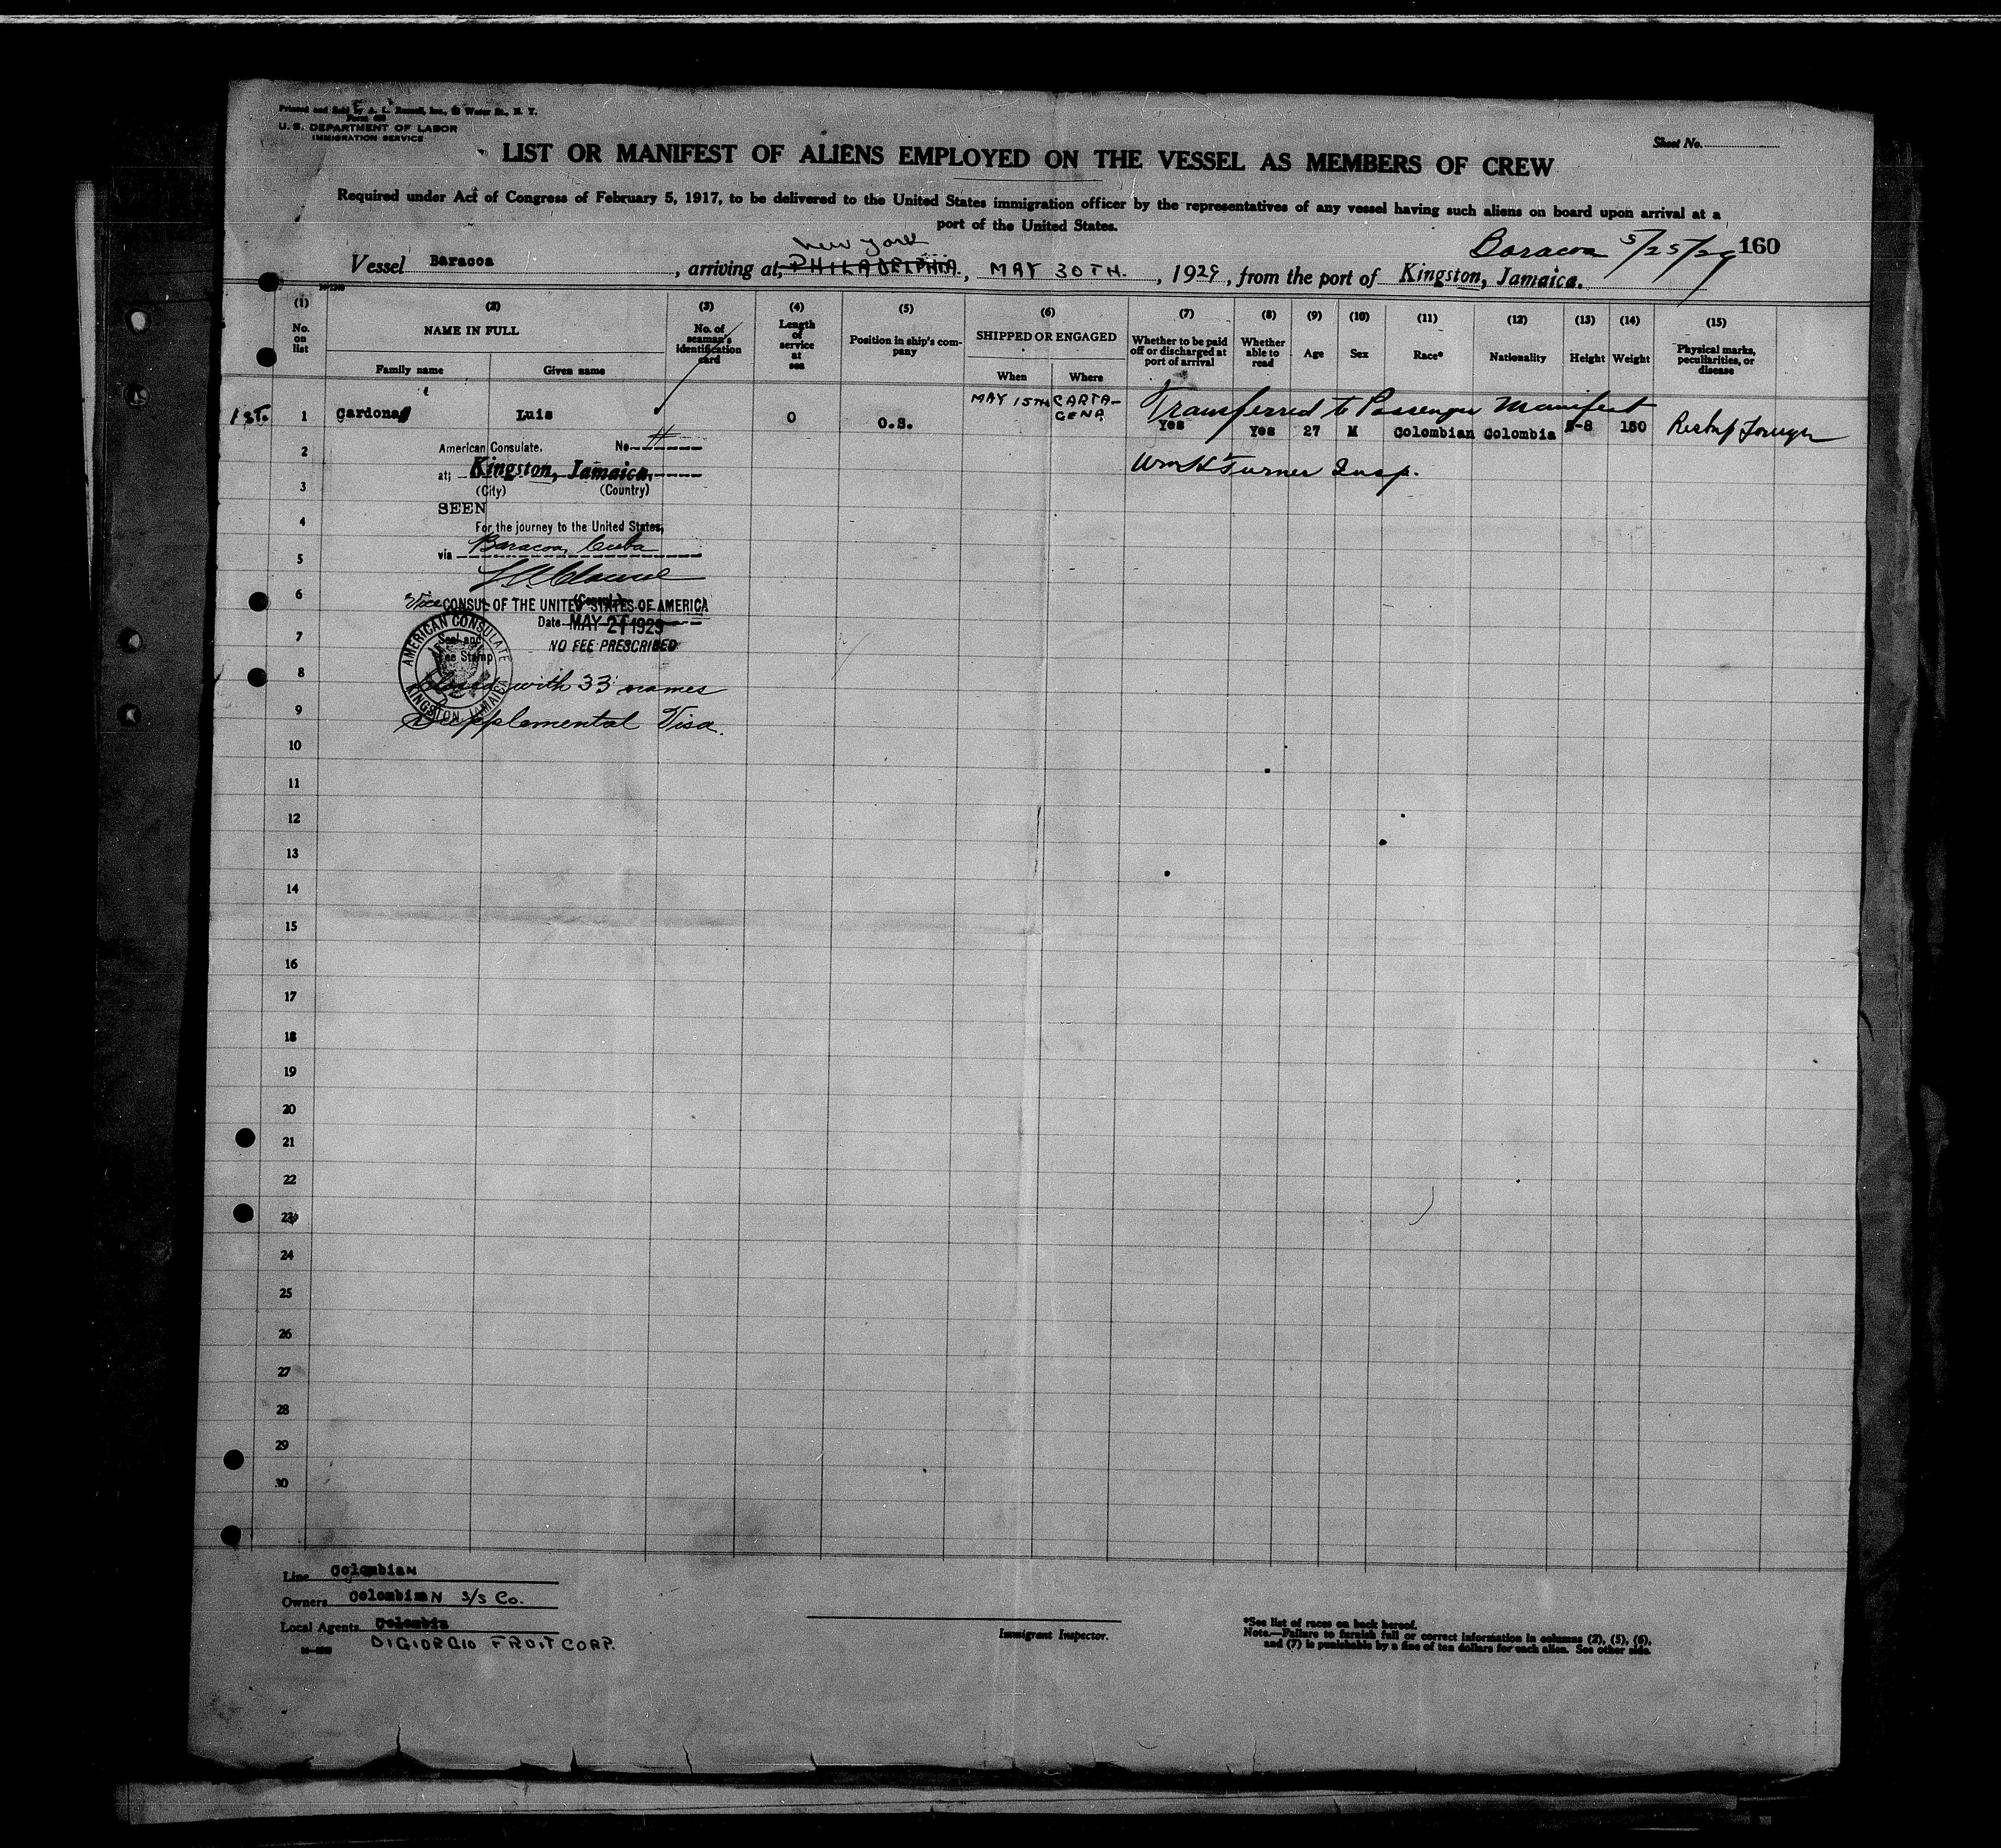 Printed and Sold by A. L. Russell, Inc., Water St., N. Y.
Form
U. S. DEPARTMENT OF LABOR
IMMIGRATION SERVICE
Sheet No.
LIST OR MANIFEST OF ALIENS EMPLOYED ON THE VESSEL AS MEMBERS OF CREW
Required under Act of Congress of February 5, 1917, to be delivered to the United States immigration officer by the representatives of any vessel having such aliens on board upon arrival at a
port of the United States.
New York
Baracoa 5/25/29 160
Vessel Baracoa, arriving at PHILADELPHIA, MAY 30TH., 1929, from the port of Kingston, Jamaica.
(1) (2) (3) (4) (5) (6) (7) (8) (9) (10) (11) (12) (13) (14) (15)
No. on list NAME IN FULL No. of seaman's identification card Length of service at sea Position in ship's company SHIPPED OR ENGAGED Whether to be paid off or discharged at port of arrival Whether able to read Age Sex Race* Nationality Height Weight Physical marks, peculiarities, or disease
Family name Given name When Where
MAY 15TH CARTAGENA Transferred to Passenger Manifest
1st. 1 Cardona Luis 0 O.S. Yes Yes 27 M Colombian Colombia 5-8 150
2 American Consulate. No
Wm H Turner Insp.
at; Kingston, Jamaica.
3 (City) (Country)
SEEN
4 For the journey to the United States,
via Baracoa, Cuba
5
6
Vice CONSUL OF THE UNITED STATES OF AMERICA
(Consul)
Date MAY 21 1929
7 Seal and
NO FEE PRESCRIBED
Fee Stamp
AMERICAN CONSULATE
KINGSTON, JAMAICA
8 Closed with 33 names
9 Supplemental Visa.
10
11
12
13
14
15
16
17
18
19
20
21
22
23
24
25
26
27
28
29
30
Line Colombian
Owners Colombian S/S Co.
Local Agents Colombia
DIGIORGIO FRUIT CORP.
Immigrant Inspector.
*See list of races on back hereof.
Note.—Failure to furnish full or correct information in columns (2), (5), (6),
and (7) is punishable by a fine of ten dollars for each alien. See other side.